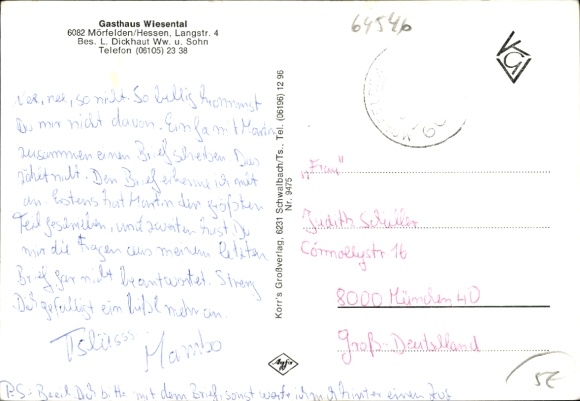 Gasthaus Wiesental
6082 Mörfelden/Hessen, Langstr. 4
Bes. L. Dickhaut Ww. u. Sohn
Telefon (06105) 23 38
64546
Nee, nee, so nicht. So billig kommst
Du mir nicht davon. Einfa mit Martin
zusammen einen Brief schreiben. Das
zählt nicht. Den Brief erkenne ich nicht
an. Erstens hat Martin den größten
Teil geschrieben, und zweitens hast Du
mir die Fragen aus meinem letzten
Brief gar nicht beantwortet. Streng
Dich gefälligst ein bißl mehr an.
Tslüsss
Mambo
P.S: Beeil Dich bitte mit dem Brief, sonst werfe ich mich hinter einen Zug
Korr's Großverlag, 6231 Schwalbach/Ts., Tel. (06196) 12 96
Nr. 9475
KGV
"Frau"
Judith Schüller
Connollystr 16
8000 München 40
Groß-Deutschland
Agfa
5E